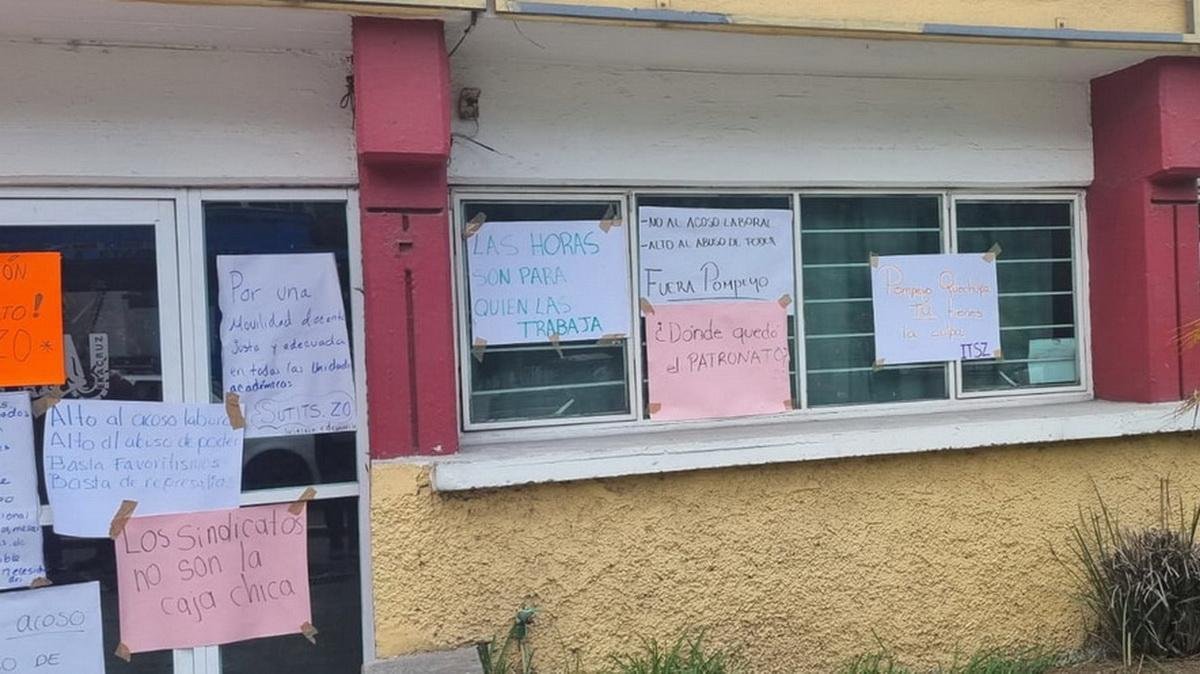 ÓN
TO!
ZO *
Por una
Movilidad docente
justa y adecuada
en todas las Unidades
académicas
SUTITS.ZO
Alto al acoso labora
Alto al abuso de poder
Basta Favoritismos
Basta de represalias
Los Sindicatos
no son la
caja chica
acoso
SO DE
LAS HORAS
SON PARA
QUIEN LAS
TRABAJA
-NO AL ACOSO LABORAL
-ALTO AL ABUSO DE PODER
FUERA POMPEYO
¿Dónde quedó
el PATRONATO?
Pompeyo Quechulpa
TÚ tienes
la culpa
ITSZ